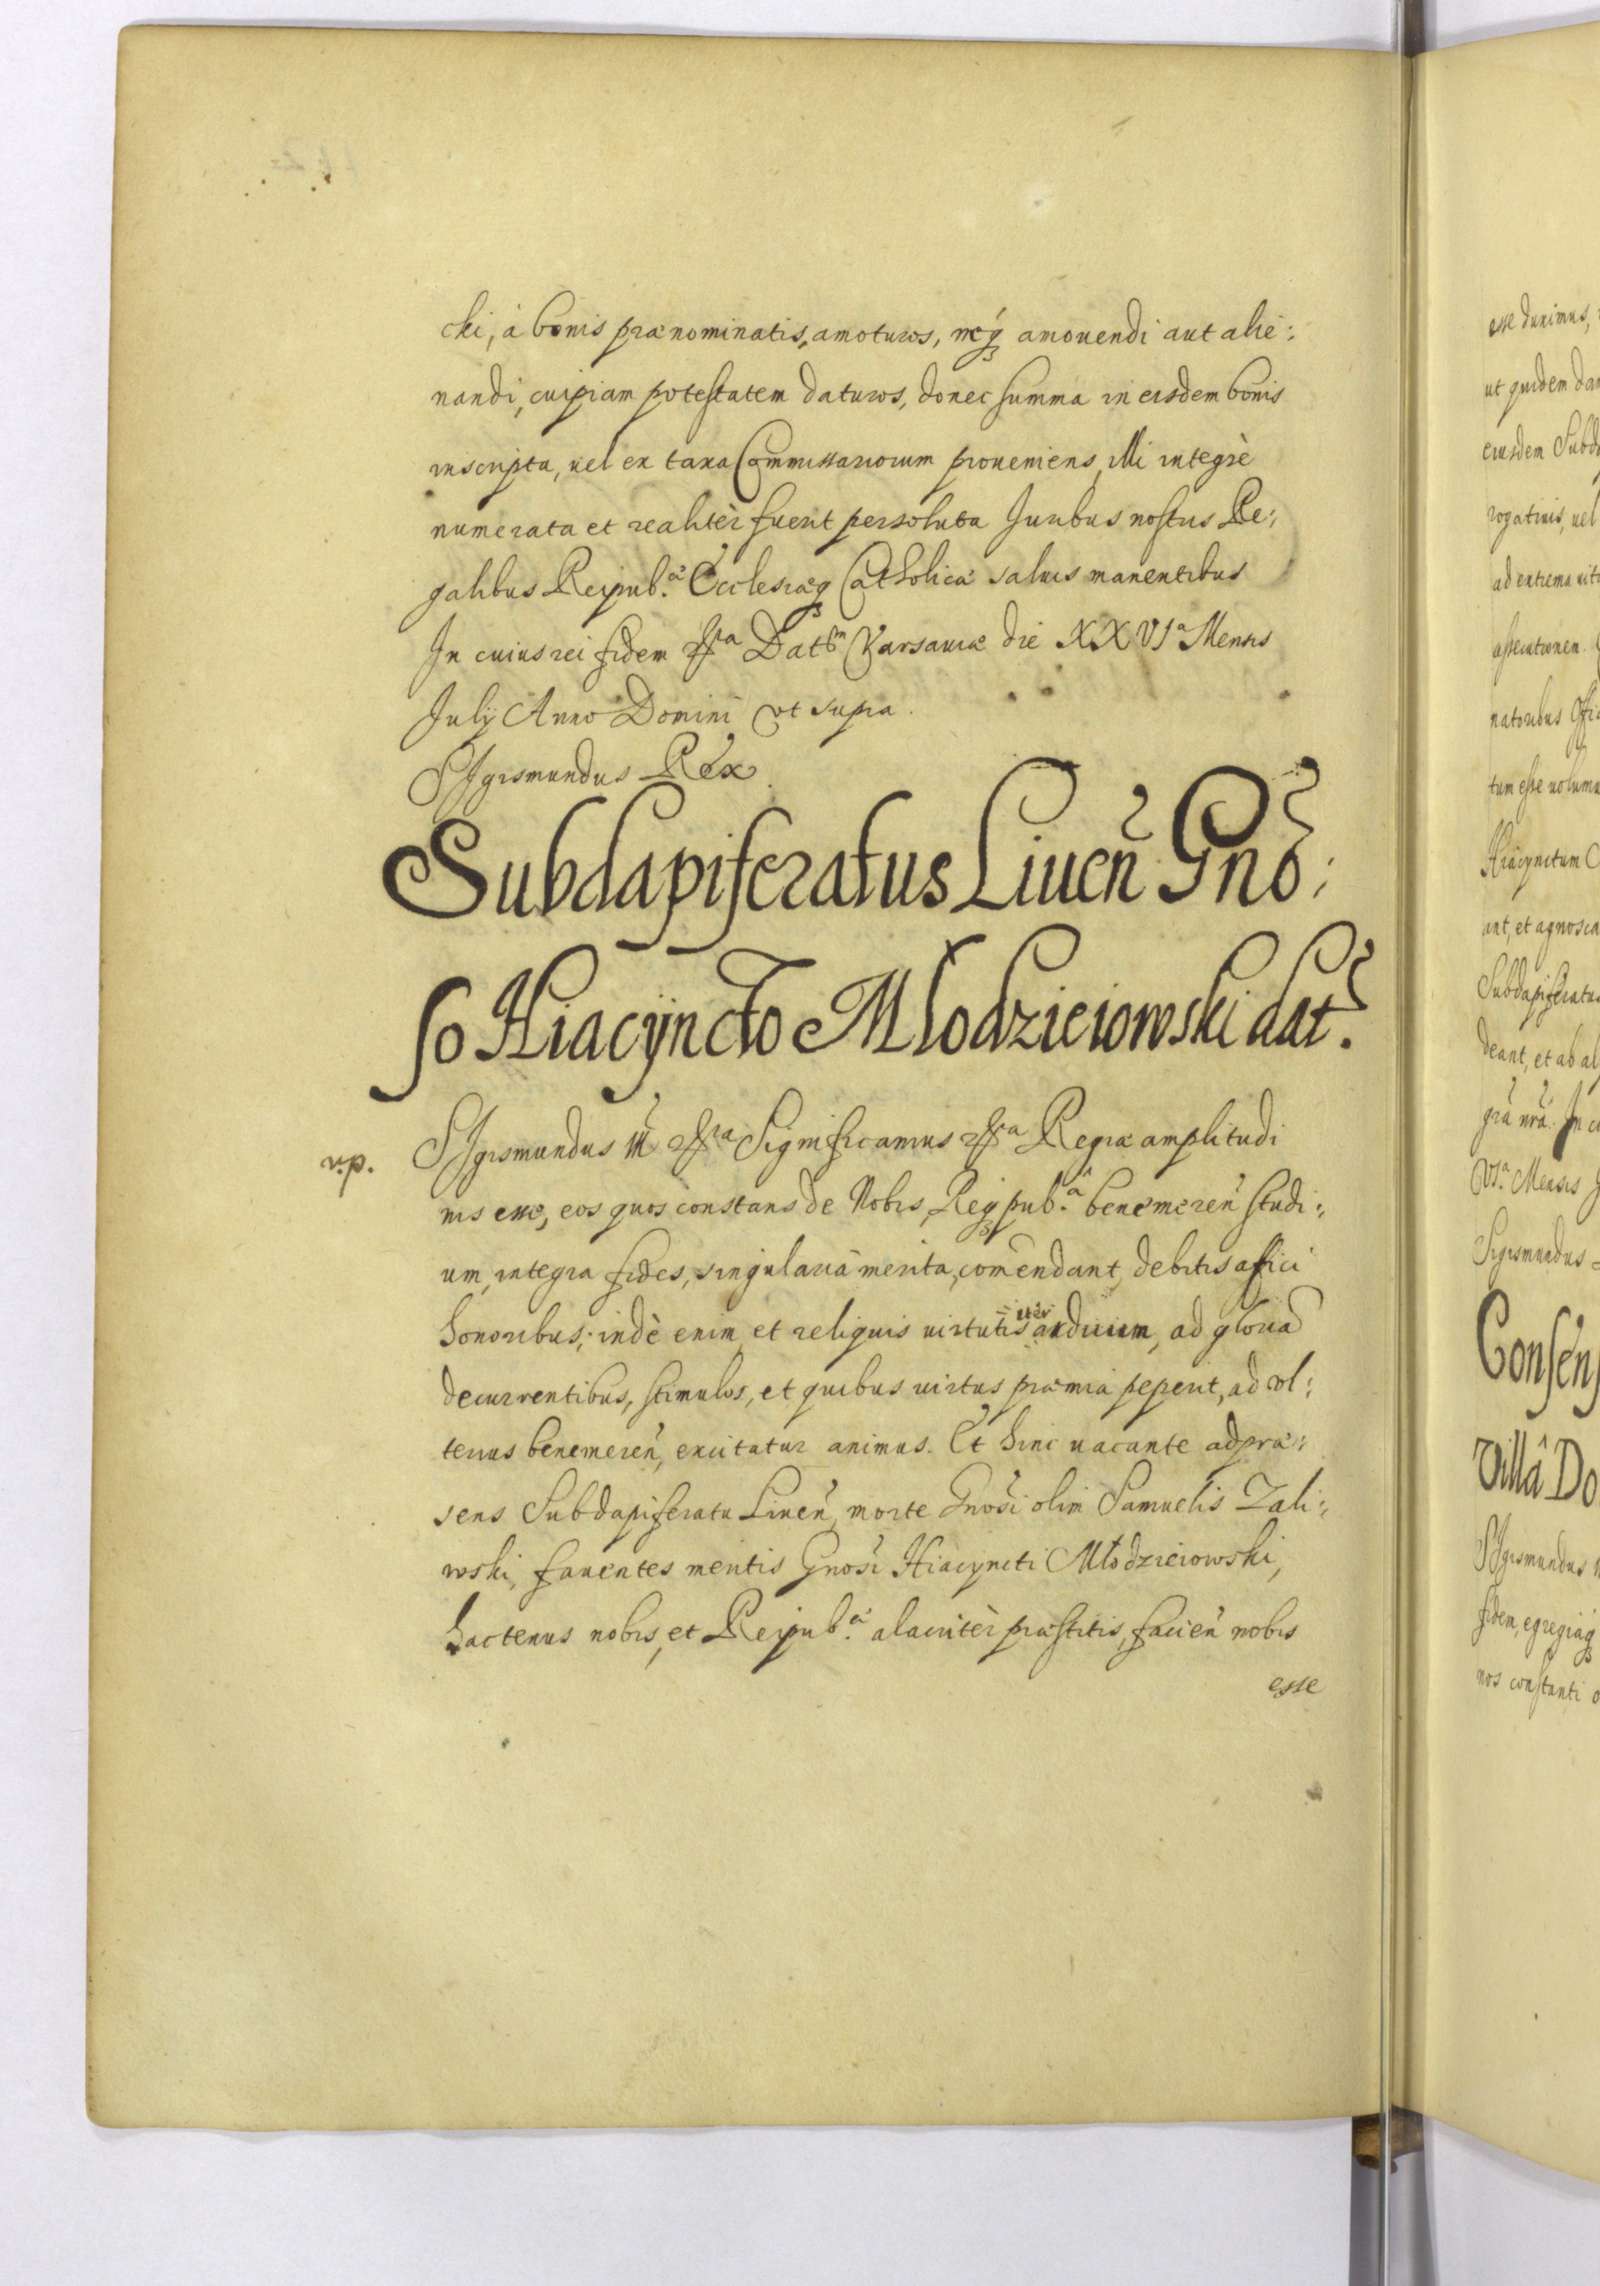 cki, à bonis prænominatis, amoturos, neq3 amouendi aut alie:
nandi, cuipiam potestatem daturos, donec summa in eisdem bonis
inscripta, uel ex taxa Commissariorum proueniens, illi integrè
numerata et realitèr fuerit persoluta Juribus nostris Re:
galibus Reipub.æ Ecclesiæq3 Catholicæ saluis manentibus
In cuius rei fidem etc. Datt̃ Varsauiæ die XXVIa Mensis
July Anno Domini vt supra.
SIgismundus Rex.
Subdapiferatus Liuen̄ Gno:
so Hiacÿncto Mlodzieiowski dat.
v.p.
SIgismundus III etc. Significamus etc. Regiæ amplitudi
nis esse, eos quos constans de Nobis, Reiq3 pub.a benemeren̄ studi:
um, integra fides, singularia merita, com̄endant, debitis affici
honoribus; indè enim et reliquis uirtutis iter arduum, ad gloriã
decurrentibus, stimulos, et quibus uirtus præmia peperit, ad vl:
terius benemeren̄, excitatur animus. Et hinc uacante ad præ:
sens Subdapiferatu Liuen̄, morte Gnosi olim Samuelis Zali:
wski, fauentes meritis Gnosi Hiacyncti Młodzieiowski,
hactenus nobis, et Reipub.æ alacritèr præstitis, facien̄ nobis
esse
esse duximus,
ut quidem dam
eiusdem Subd
rogatiuis, uel
ad extrema uit
assecutionem.
natoribus Offic
tum esse uolumu
Hiacynctum
ant, et agnosca
Subdapiferatu
deant, et ab al
grã nr̃ã. In c
VIa. Mensis J
Sigismundus
Consens
Villâ Do
SIgismundus
fidem, egregiaq3
nos constanti o